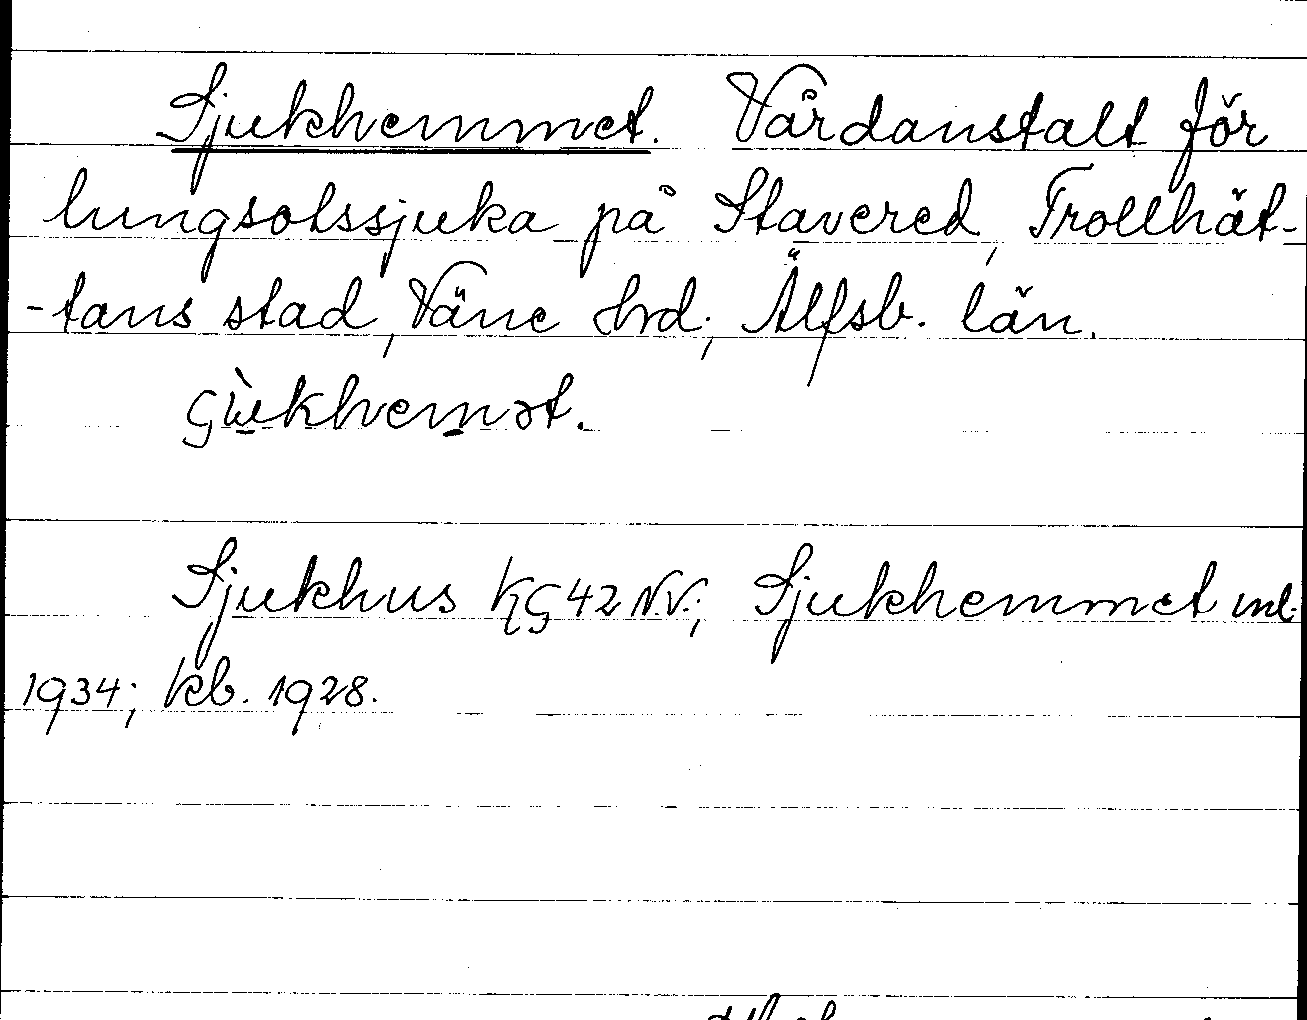 Sjukhemmet. Vårdanstalt för
lungsotssjuka på Stavered, Trollhät-
-tans stad, Väne hrd; Älfsb. län.
Sjukhus KG 42 N.V.; Sjukhemmet ml.
1934; kb. 1928.